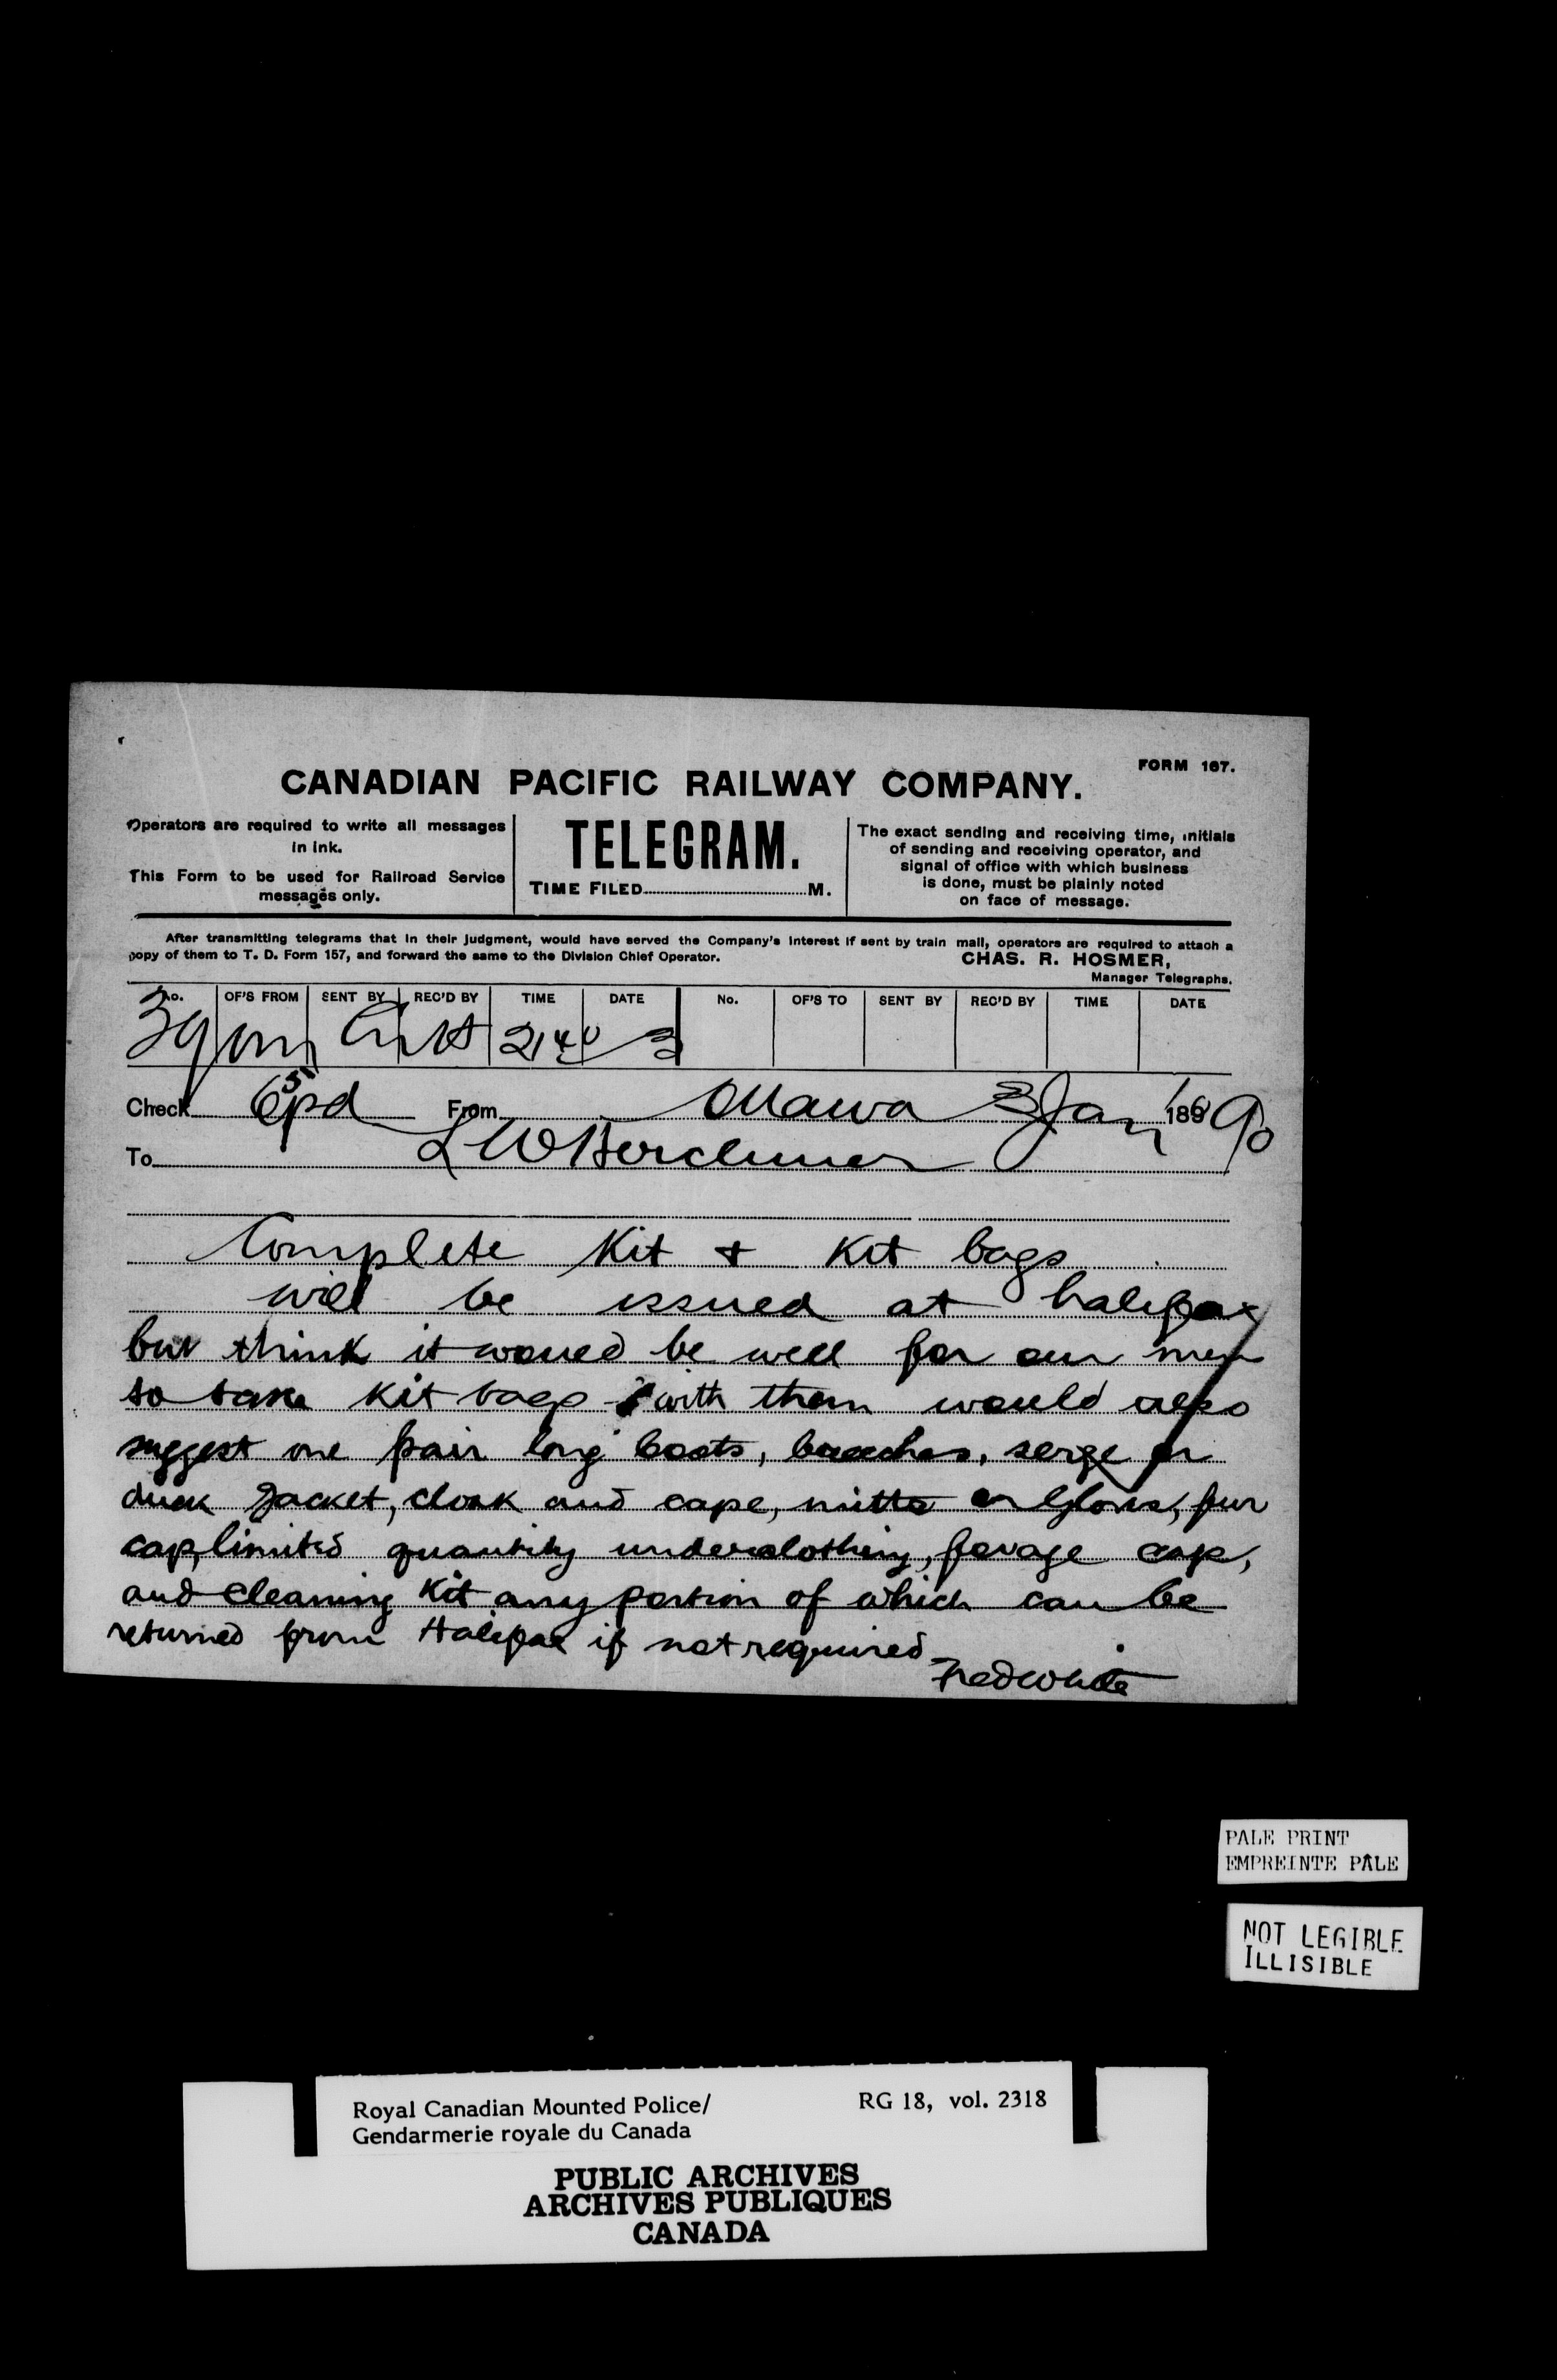 FORM 167.
CANADIAN PACIFIC RAILWAY COMPANY.
Operators are required to write all messages
in ink.
This Form to be used for Railroad Service
messages only.
TELEGRAM.
TIME FILED M.
The exact sending and receiving time, initials
of sending and receiving operator, and
signal of office with which business
is done, must be plainly noted
on face of message.
After transmitting telegrams that in their judgment, would have served the Company's interest if sent by train mail, operators are required to attach a
copy of them to T. D. Form 157, and forward the same to the Division Chief Operator.
CHAS. R. HOSMER,
Manager Telegraphs.
No. OF'S FROM SENT BY REC'D BY TIME DATE No. OF'S TO SENT BY REC'D BY TIME DATE
39 240 3
Check 65 pd From Ottawa 3 Jan 1890
To L W Herchmer
Complete Kit & Kit bags
will be issued at halifax
but think it would be well for our men
to take Kit bags with them would also
suggest one pair long boots, breeches, serge or
duck Jacket, cloak and cape, mitts or Gloves, fur
cap, limited quantity underclothing, forage cap,
and cleaning Kit any portion of which can be
returned from Halifax if not required
Fred White
PALE PRINT
EMPREINTE PÂLE
NOT LEGIBLE
ILLISIBLE
Royal Canadian Mounted Police/ RG 18, vol. 2318
Gendarmerie royale du Canada
PUBLIC ARCHIVES
ARCHIVES PUBLIQUES
CANADA